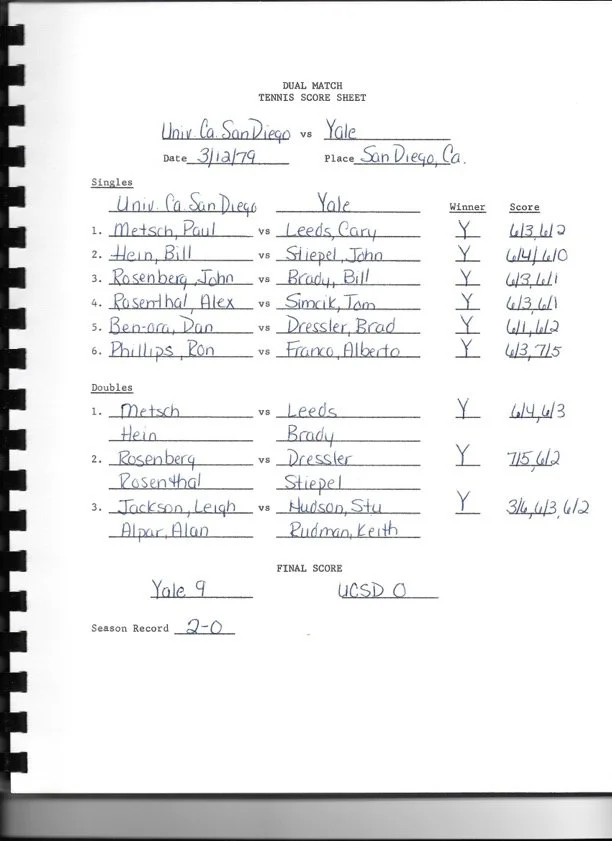 DUAL MATCH
TENNIS SCORE SHEET
Univ. Ca. San Diego vs Yale
Date 3/12/79 Place San Diego, Ca.
Singles
Univ. Ca. San Diego Yale Winner Score
1. Metsch, Paul vs Leeds, Cary Y 6/3, 6/2
2. Hein, Bill vs Stiepel, John Y 6/4/ 6/0
3. Rosenberg, John vs Brady, Bill Y 6/3, 6/1
4. Rosenthal, Alex vs Simcik, Tom Y 6/3, 6/1
5. Ben-ora, Dan vs Dressler, Brad Y 6/1, 6/2
6. Phillips, Ron vs Franco, Alberto Y 6/3, 7/5
Doubles
1. Metsch vs Leeds Y 6/4, 6/3
Hein Brady
2. Rosenberg vs Dressler Y 7/5, 6/2
Rosenthal Stiepel
3. Jackson, Leigh vs Hudson, Stu Y 3/6, 6/3, 6/2
Alpar, Alan Rudman, Keith
FINAL SCORE
Yale 9 UCSD 0
Season Record 2-0